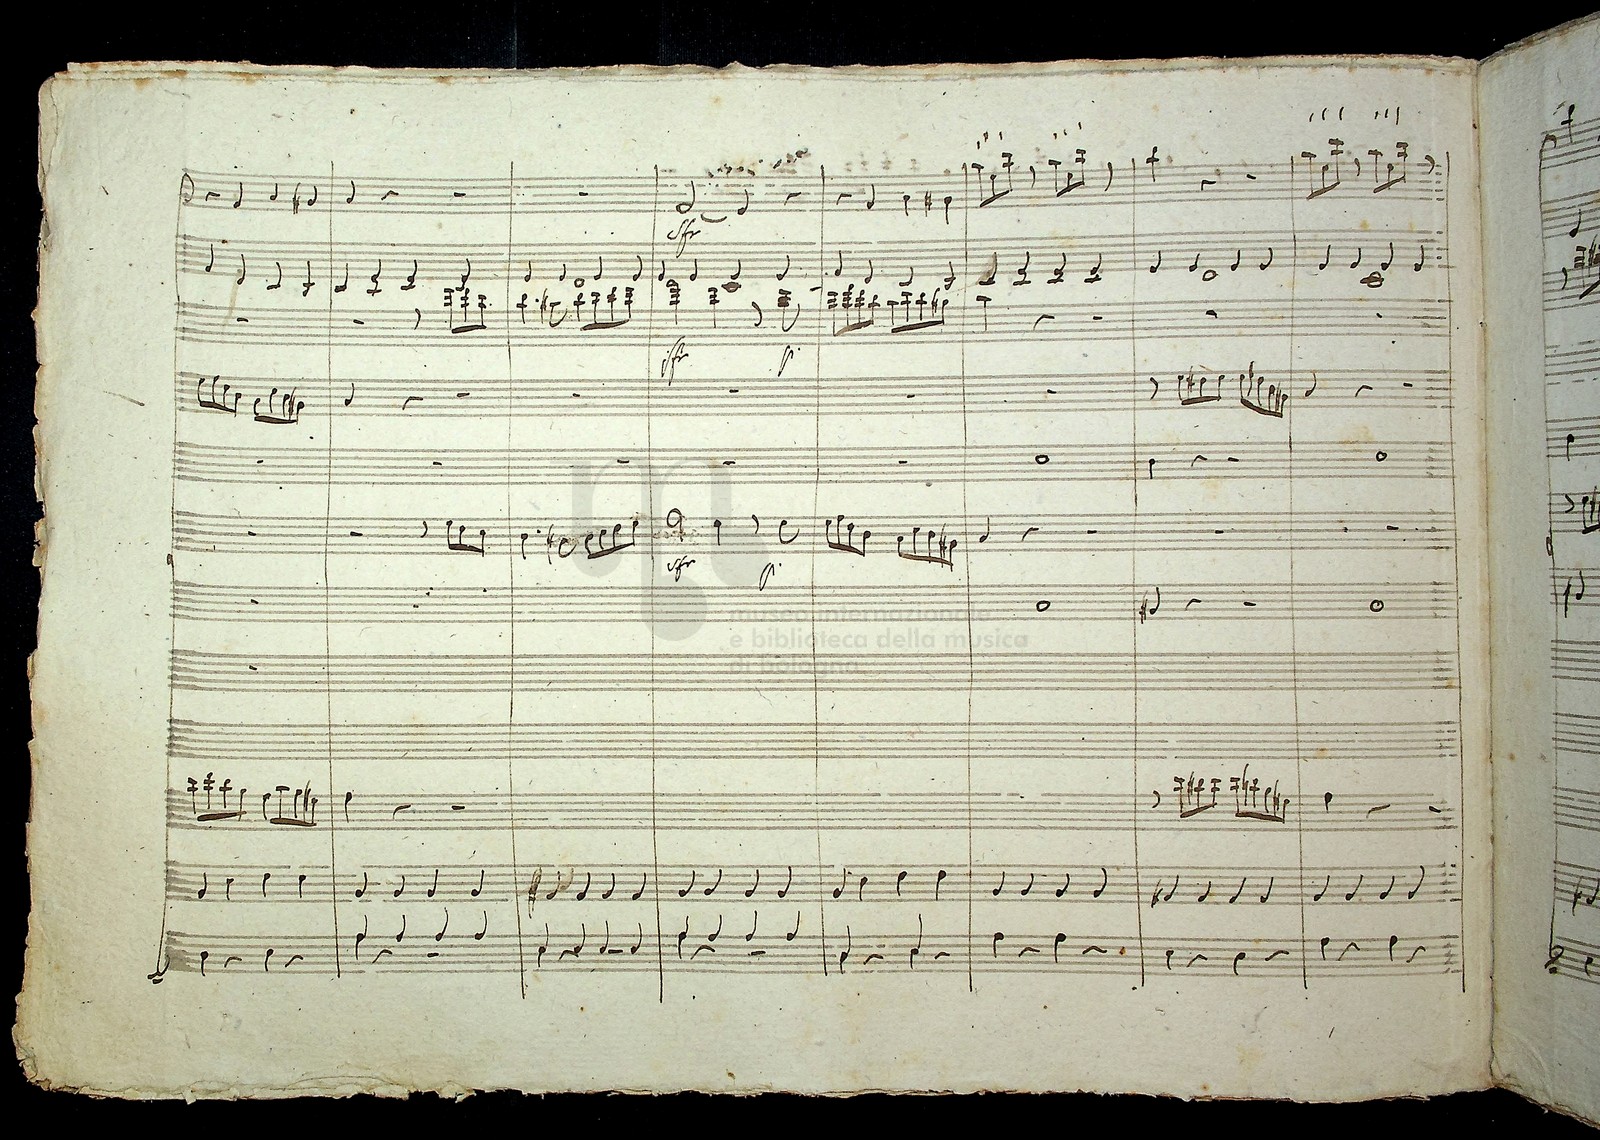 sfr
sfr p:
sfr p:
museo internazionale
e biblioteca della musica
di bologna